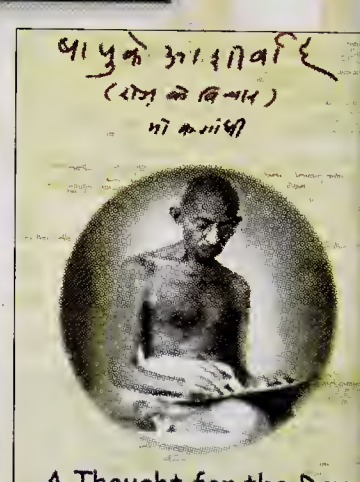 बापुके आशीर्वाद
(रोज़ के विचार)
मो क गांधी
A Thought for the Day